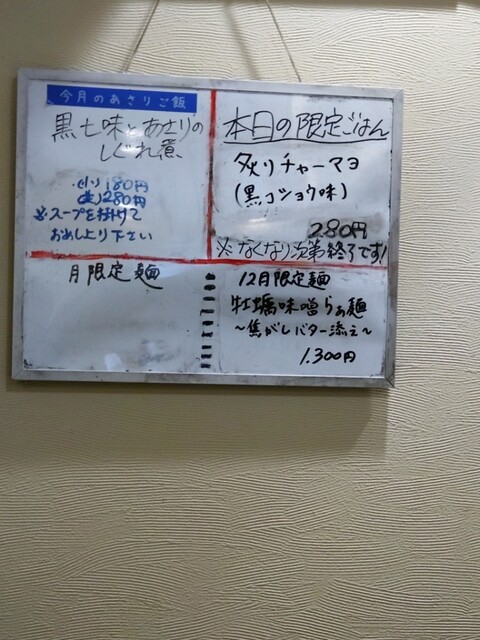 今月のあさりご飯
黒七味とあさりの
しぐれ煮
(小) 180円
(並) 280円
※スープを掛けて
お召し上り下さい
本日の限定ごはん
炙りチャーマヨ
(黒コショウ味)
280円
※なくなり次第終了です!
月限定麺
12月限定麺
牡蠣味噌らぁ麺
~焦がしバター添え~
1.300円